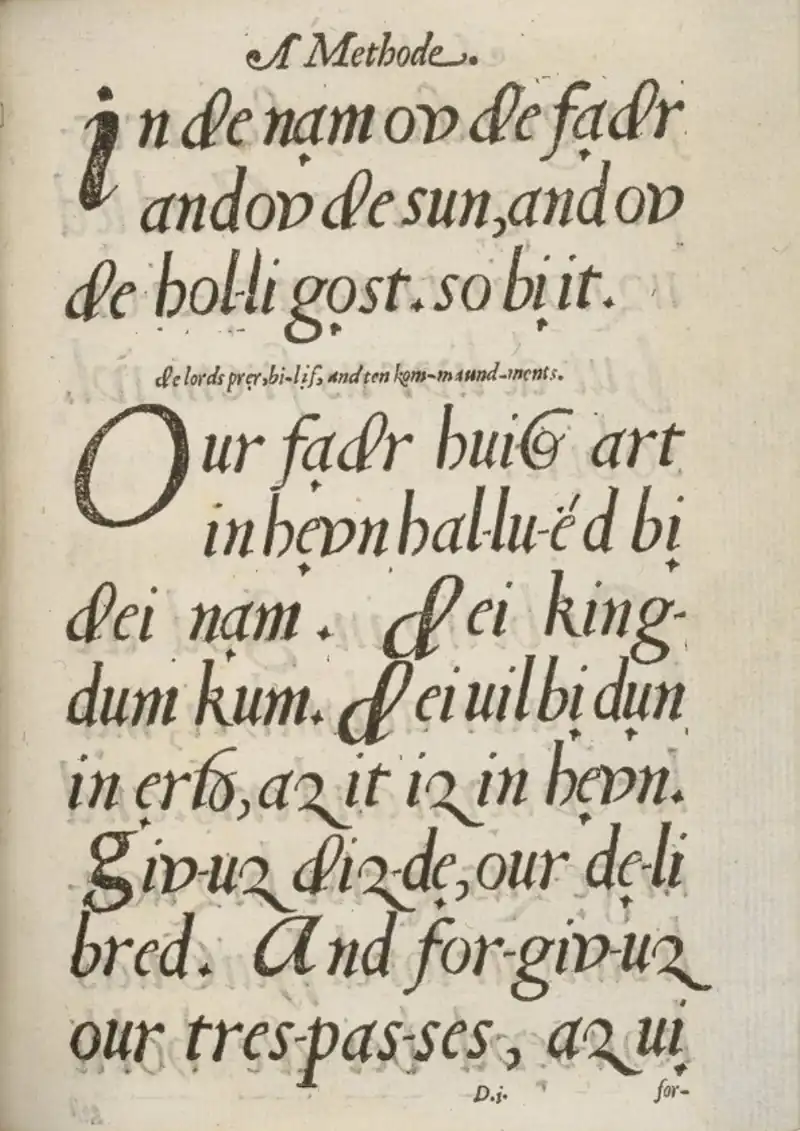 A Methode.
in ðe nạm ov ðe fạðr
and ov ðe sun, and ov
ðe hol-li gọst. so bị it.
ðe lords prẹr, bi-lịf, and ten kọm-maund-ments.
Our fạðr huiꞔ art
in hẹvn hal-lu-ë́d bị
ðei nạm. Ðei king-
dum kum. Ðei uil bị dụn
in ẹrþ, az it iz in hẹvn.
Giv-uz ðiz-dẹ, our dẹ-li
bred. And for-giv-uz
our tres-pas-ses, az uị
D.j.
for-